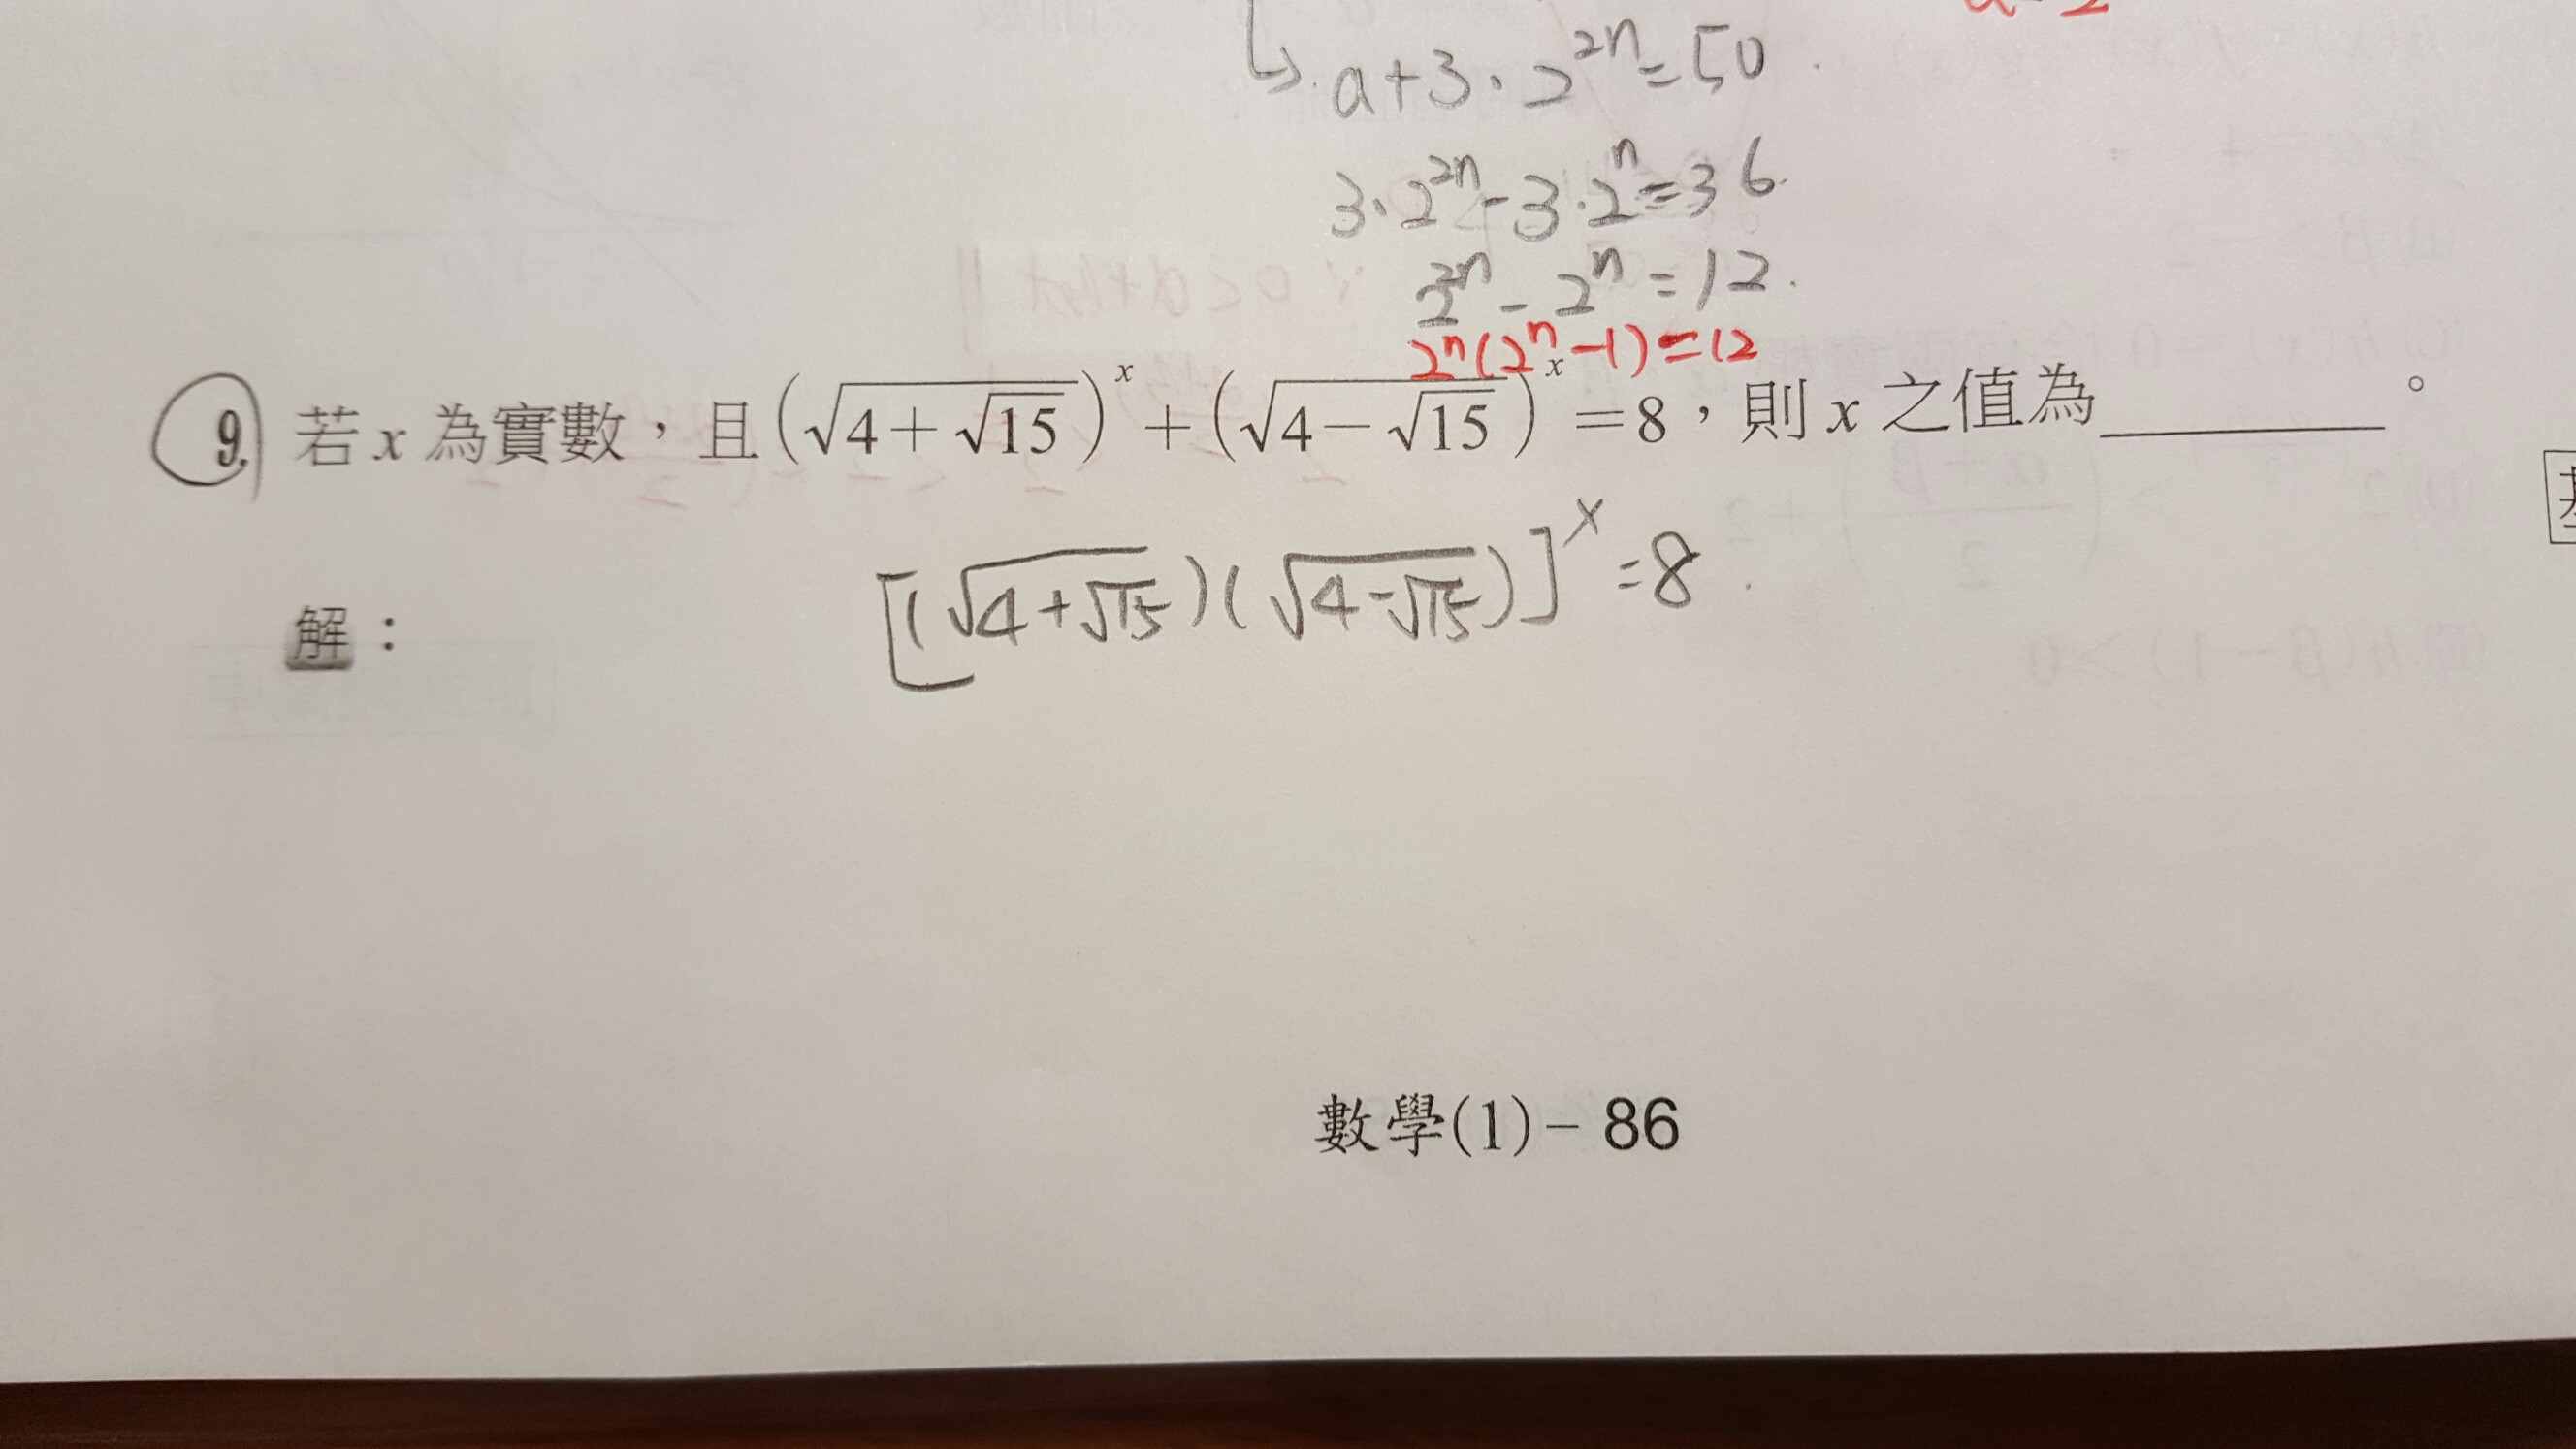 ↳ a+3·2^{2n}=50
3·2^{2n}-3·2^n=36
2^{2n}-2^n=12
2^n(2^n-1)=12
9. 若 x 為實數，且(√(4+√15))^x+(√(4-√15))^x=8，則 x 之值為________。
[(√(4+√15))(√(4-√15))]^x=8
解：
數學(1)－86